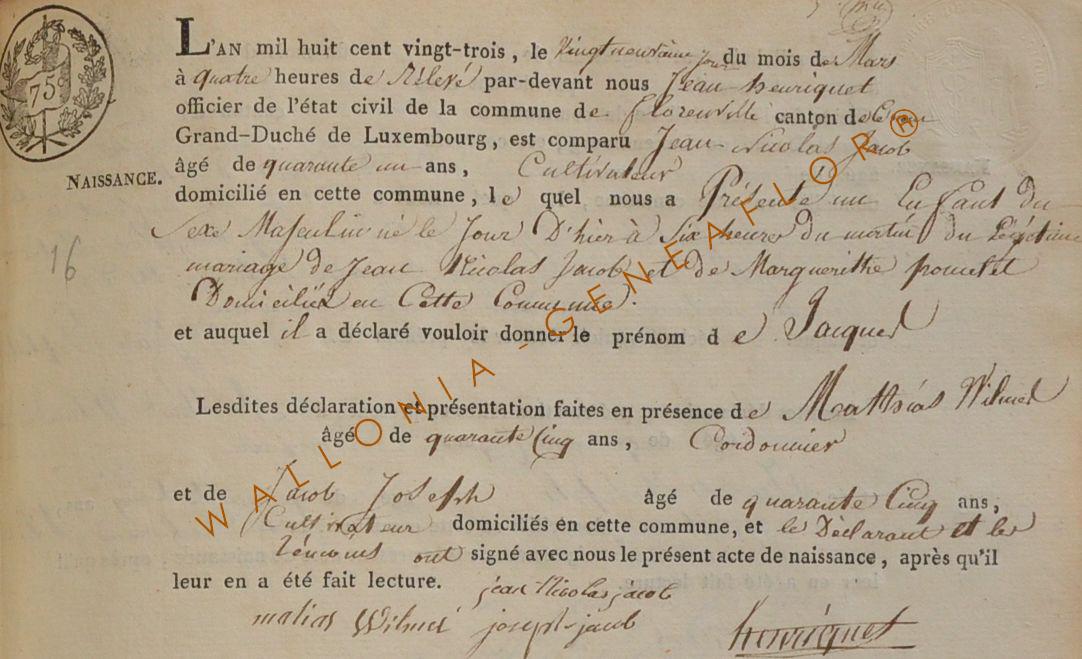 75
L'AN mil huit cent vingt-trois, le vingtneuvieme jour du mois de Mars
à quatre heures de Rélevé par-devant nous Jean henriquet
officier de l'état civil de la commune de florenville canton de
Grand-Duché de Luxembourg, est comparu Jean Nicolas Jacob
NAISSANCE.
âgé de quarante un ans, Cultivateur
domicilié en cette commune, le quel nous a Présenté un Enfant du
16
Sexe Masculin né le Jour D'hier à Six heures du matin du Légitime
mariage de Jean Nicolas Jacob et de Marguerithe
Domiciliés en Cette Commune.
et auquel il a déclaré vouloir donner le prénom de Jacques
Lesdites déclaration et présentation faites en présence de Matthias Wilmes
âgé de quarante Cinq ans, Cordonnier
et de Jacob Joseph âgé de quarante Cinq ans,
Cultivateur domiciliés en cette commune, et le Déclarant et les
témoins ont signé avec nous le présent acte de naissance, après qu'il
leur en a été fait lecture.
jean Nicolas jacob
matias Wilmes joseph jacob henriquet
WALLONIA-GENEAFLOR®